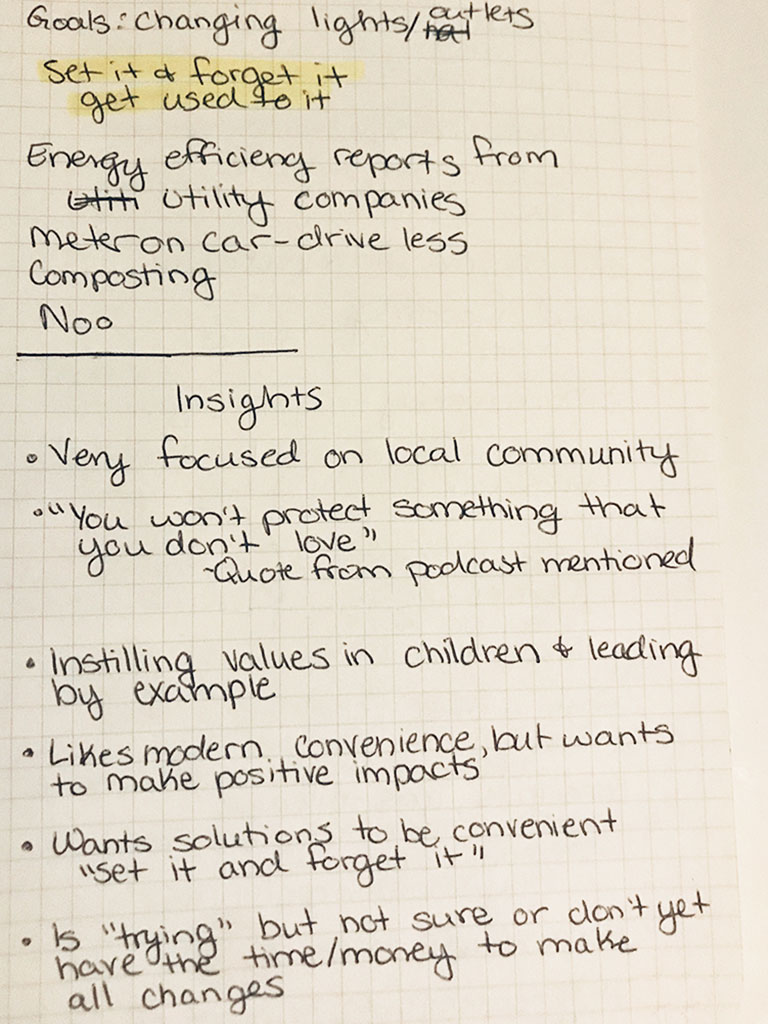 Goals: Changing lights/outlets
Set it & forget it
get used to it
Energy efficieny reports from
utility companies
Meter on car-drive less
Composting
Noo
Insights
• Very focused on local community
• "You won't protect something that
you don't love"
-Quote from podcast mentioned
• Instilling values in children & leading
by example
• Likes modern convenience, but wants
to make positive impacts
• Wants solutions to be convenient
"set it and forget it"
• Is "trying" but not sure or don't yet
have the time/money to make
all changes